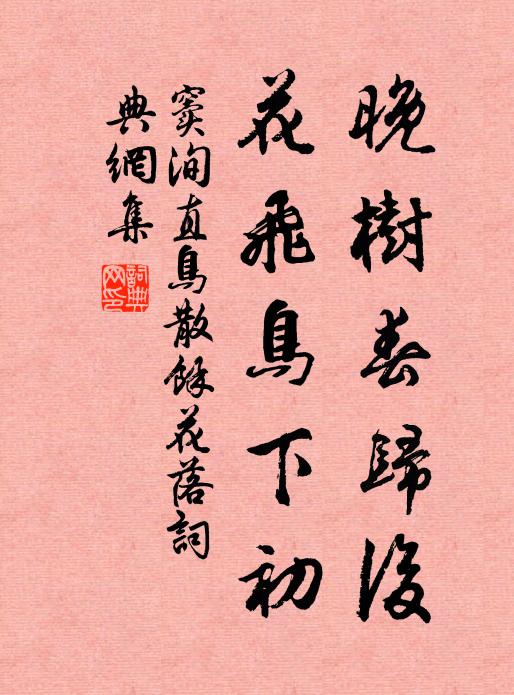 晚樹春歸後
花飛鳥下初
竇洵直鳥散餘花落詞
典網集
詞典
网印